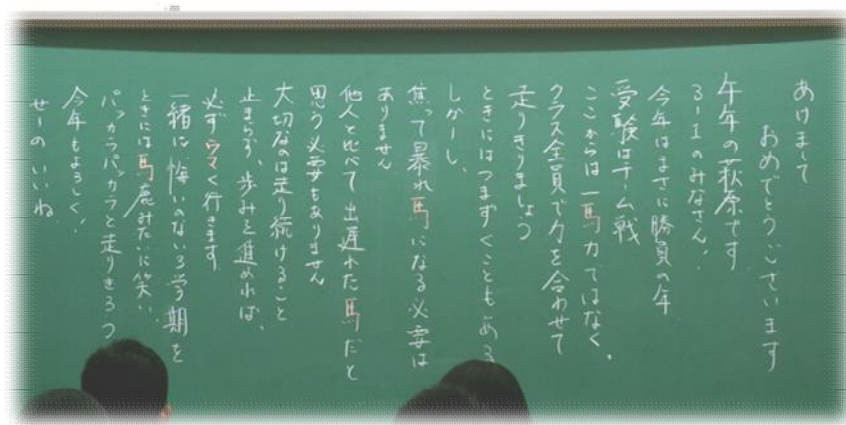 あけまして
おめでとうございます
午年の萩原です
3-1のみなさん!
今年はまさに勝負の年
受験はチーム戦
ここからは一馬力ではなく、
クラス全員で力を合わせて
走りきりましょう
ときにはつまずくこともある
しかーし、
焦って暴れ馬になる必要は
ありません
他人と比べて出遅れた馬だと
思う必要もありません
大切なのは走り続けること
止まらず、歩みを進めれば、
必ずウマく行きます
一緒に悔いのない3学期を
ときには馬鹿みたいに笑い、
パッカラパッカラと走りきろう
今年もよろしく!
せーのいいね